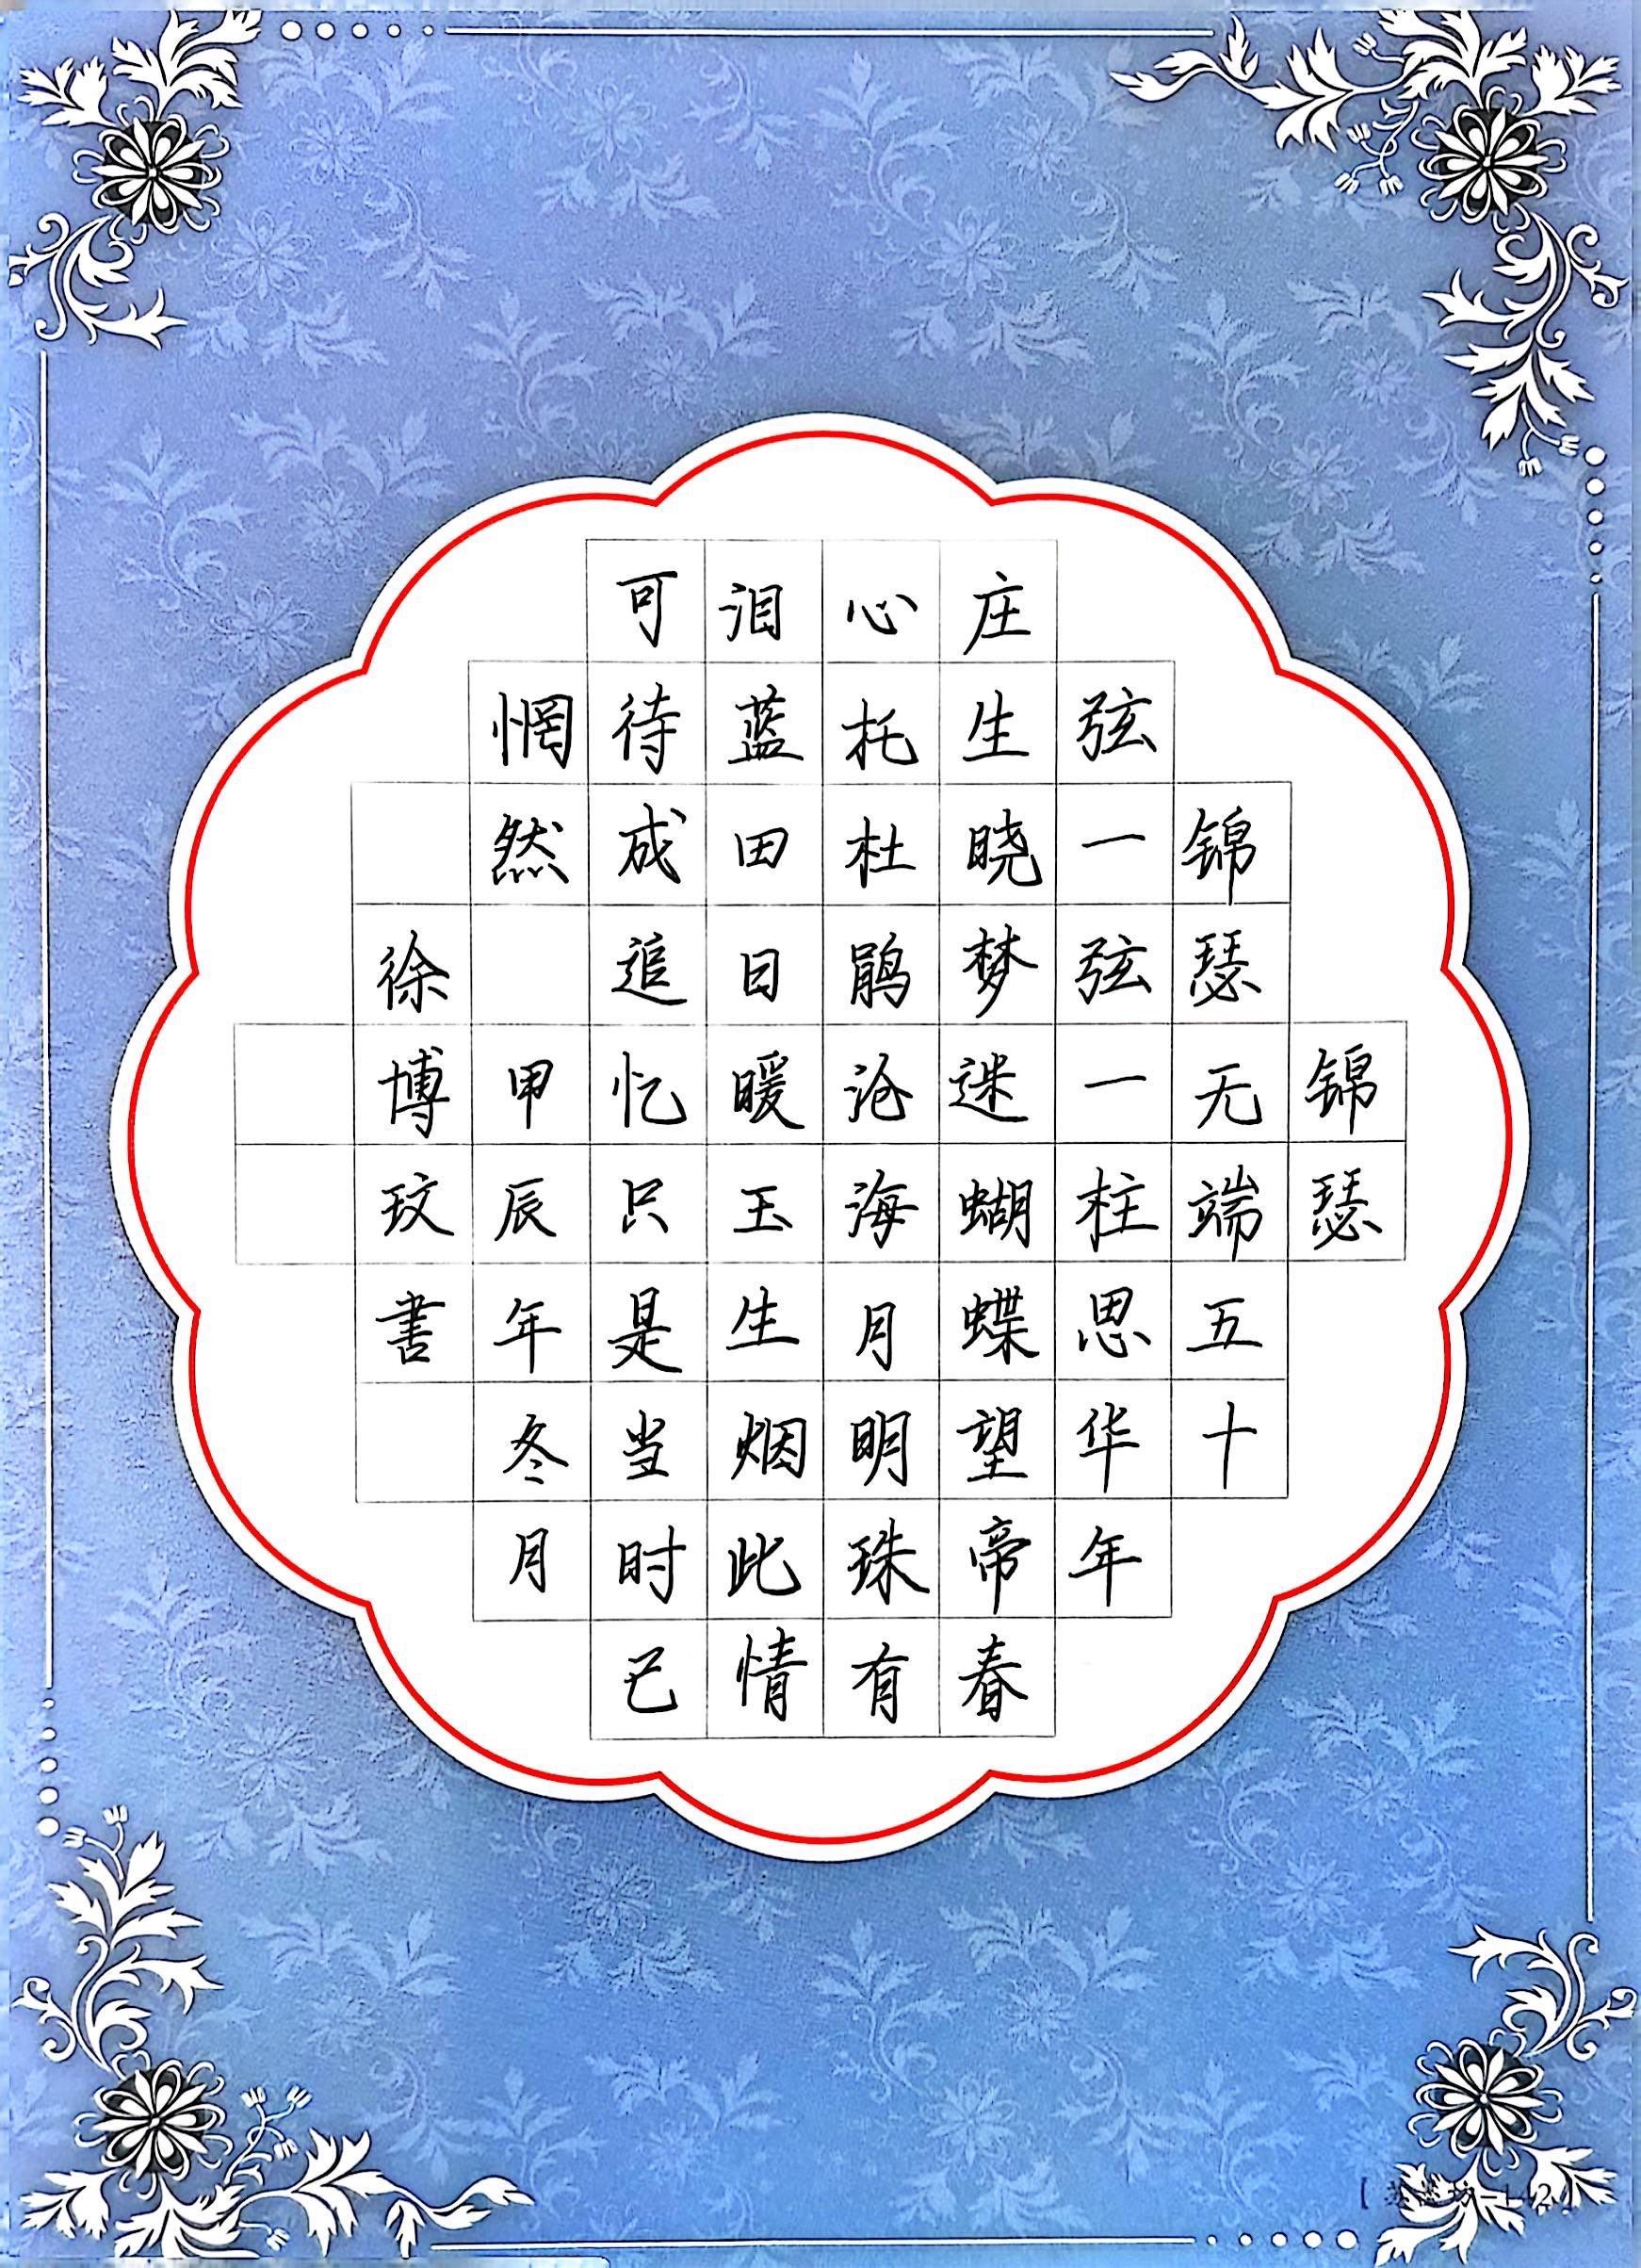 锦瑟
锦瑟无端五十
弦一弦一柱思华年
庄生晓梦迷蝴蝶望帝春
心托杜鹃沧海月明珠有
泪蓝田日暖玉生烟此情
可待成追忆只是当时已
惘然 甲辰年冬月
徐博玟書